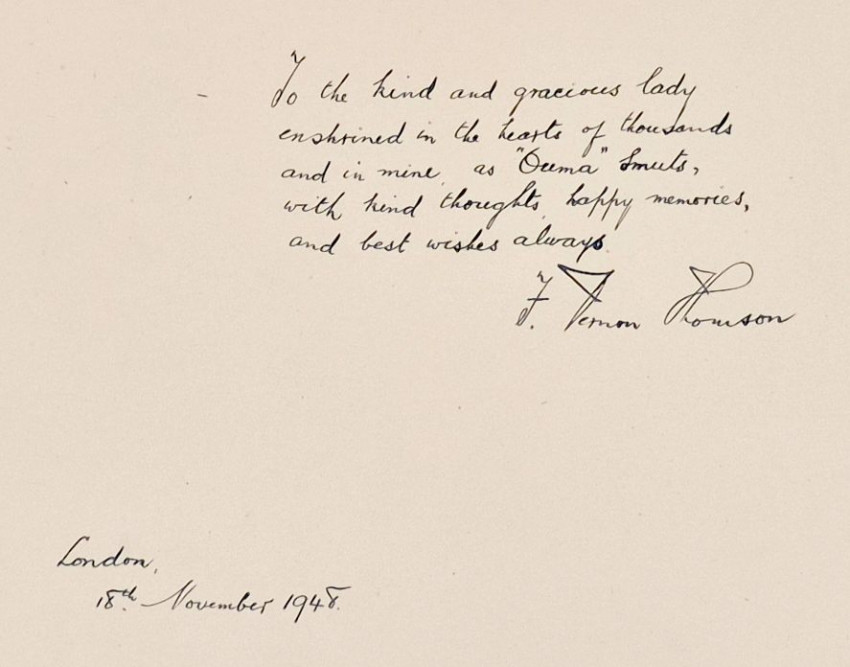 To the kind and gracious lady
enshrined in the hearts of thousands
and in mine, as "Ouma" Smuts,
with kind thoughts, happy memories,
and best wishes always.
F. Vernon Thomson
London,
18th November 1948.